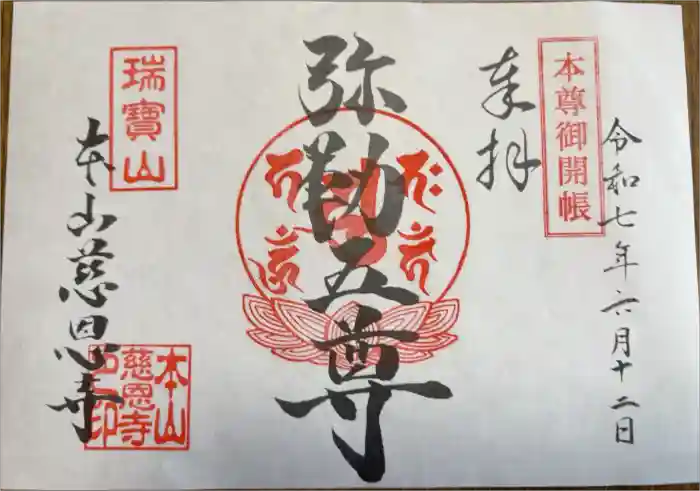 本尊御開帳
令和七年六月十二日
奉拝
弥勒五尊
瑞寳山
本山慈恩寺
本山
慈恩寺